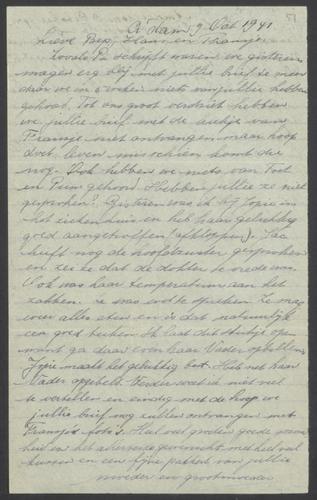 A'dam 9 Oct 1941
Lieve Bep, Hans en Fransje
Zooals Pa schrijft waren we gisteren
morgen erg blij met jullie brief te meer
daar we in 6 weken niets van jullie hebben
gehoord. Tot ons groot verdriet hebben
we jullie brief met de kiekjes van
Fransje niet ontvangen maar hoop
doet leven misschien komt die
nog. Ook hebben we niets van Toot
en Puin gehoord. Hebben jullie ze niet
gesproken? Gisteren was ik bij Jopie in
het ziekenhuis en heb haar gelukkig
goed aangetroffen (afkloppen). Sae
heeft nog de hoofdzuster gesproken
en zei ze dat de dokter tevreden was
Ook was haar temperatuur aan het
zakken. Ze was erg opgeheven. Ze mag
weer alles eten en is dat natuurlijk
een goed teeken. Ik laat dit stukje open
want ga daar even haar Vader opbellen
Jopie maakt het gelukkig best. Heb net haar
Vader opgebeld. Verder weet ik niet veel
te vertellen en eindig met de hoop we
jullie brief nog zullen ontvangen met
Fransje foto's. Heel veel goeds
en het allerbeste gewenscht met heel veel
kussen en een fijne pakkert van jullie
moeder en grootmoeder